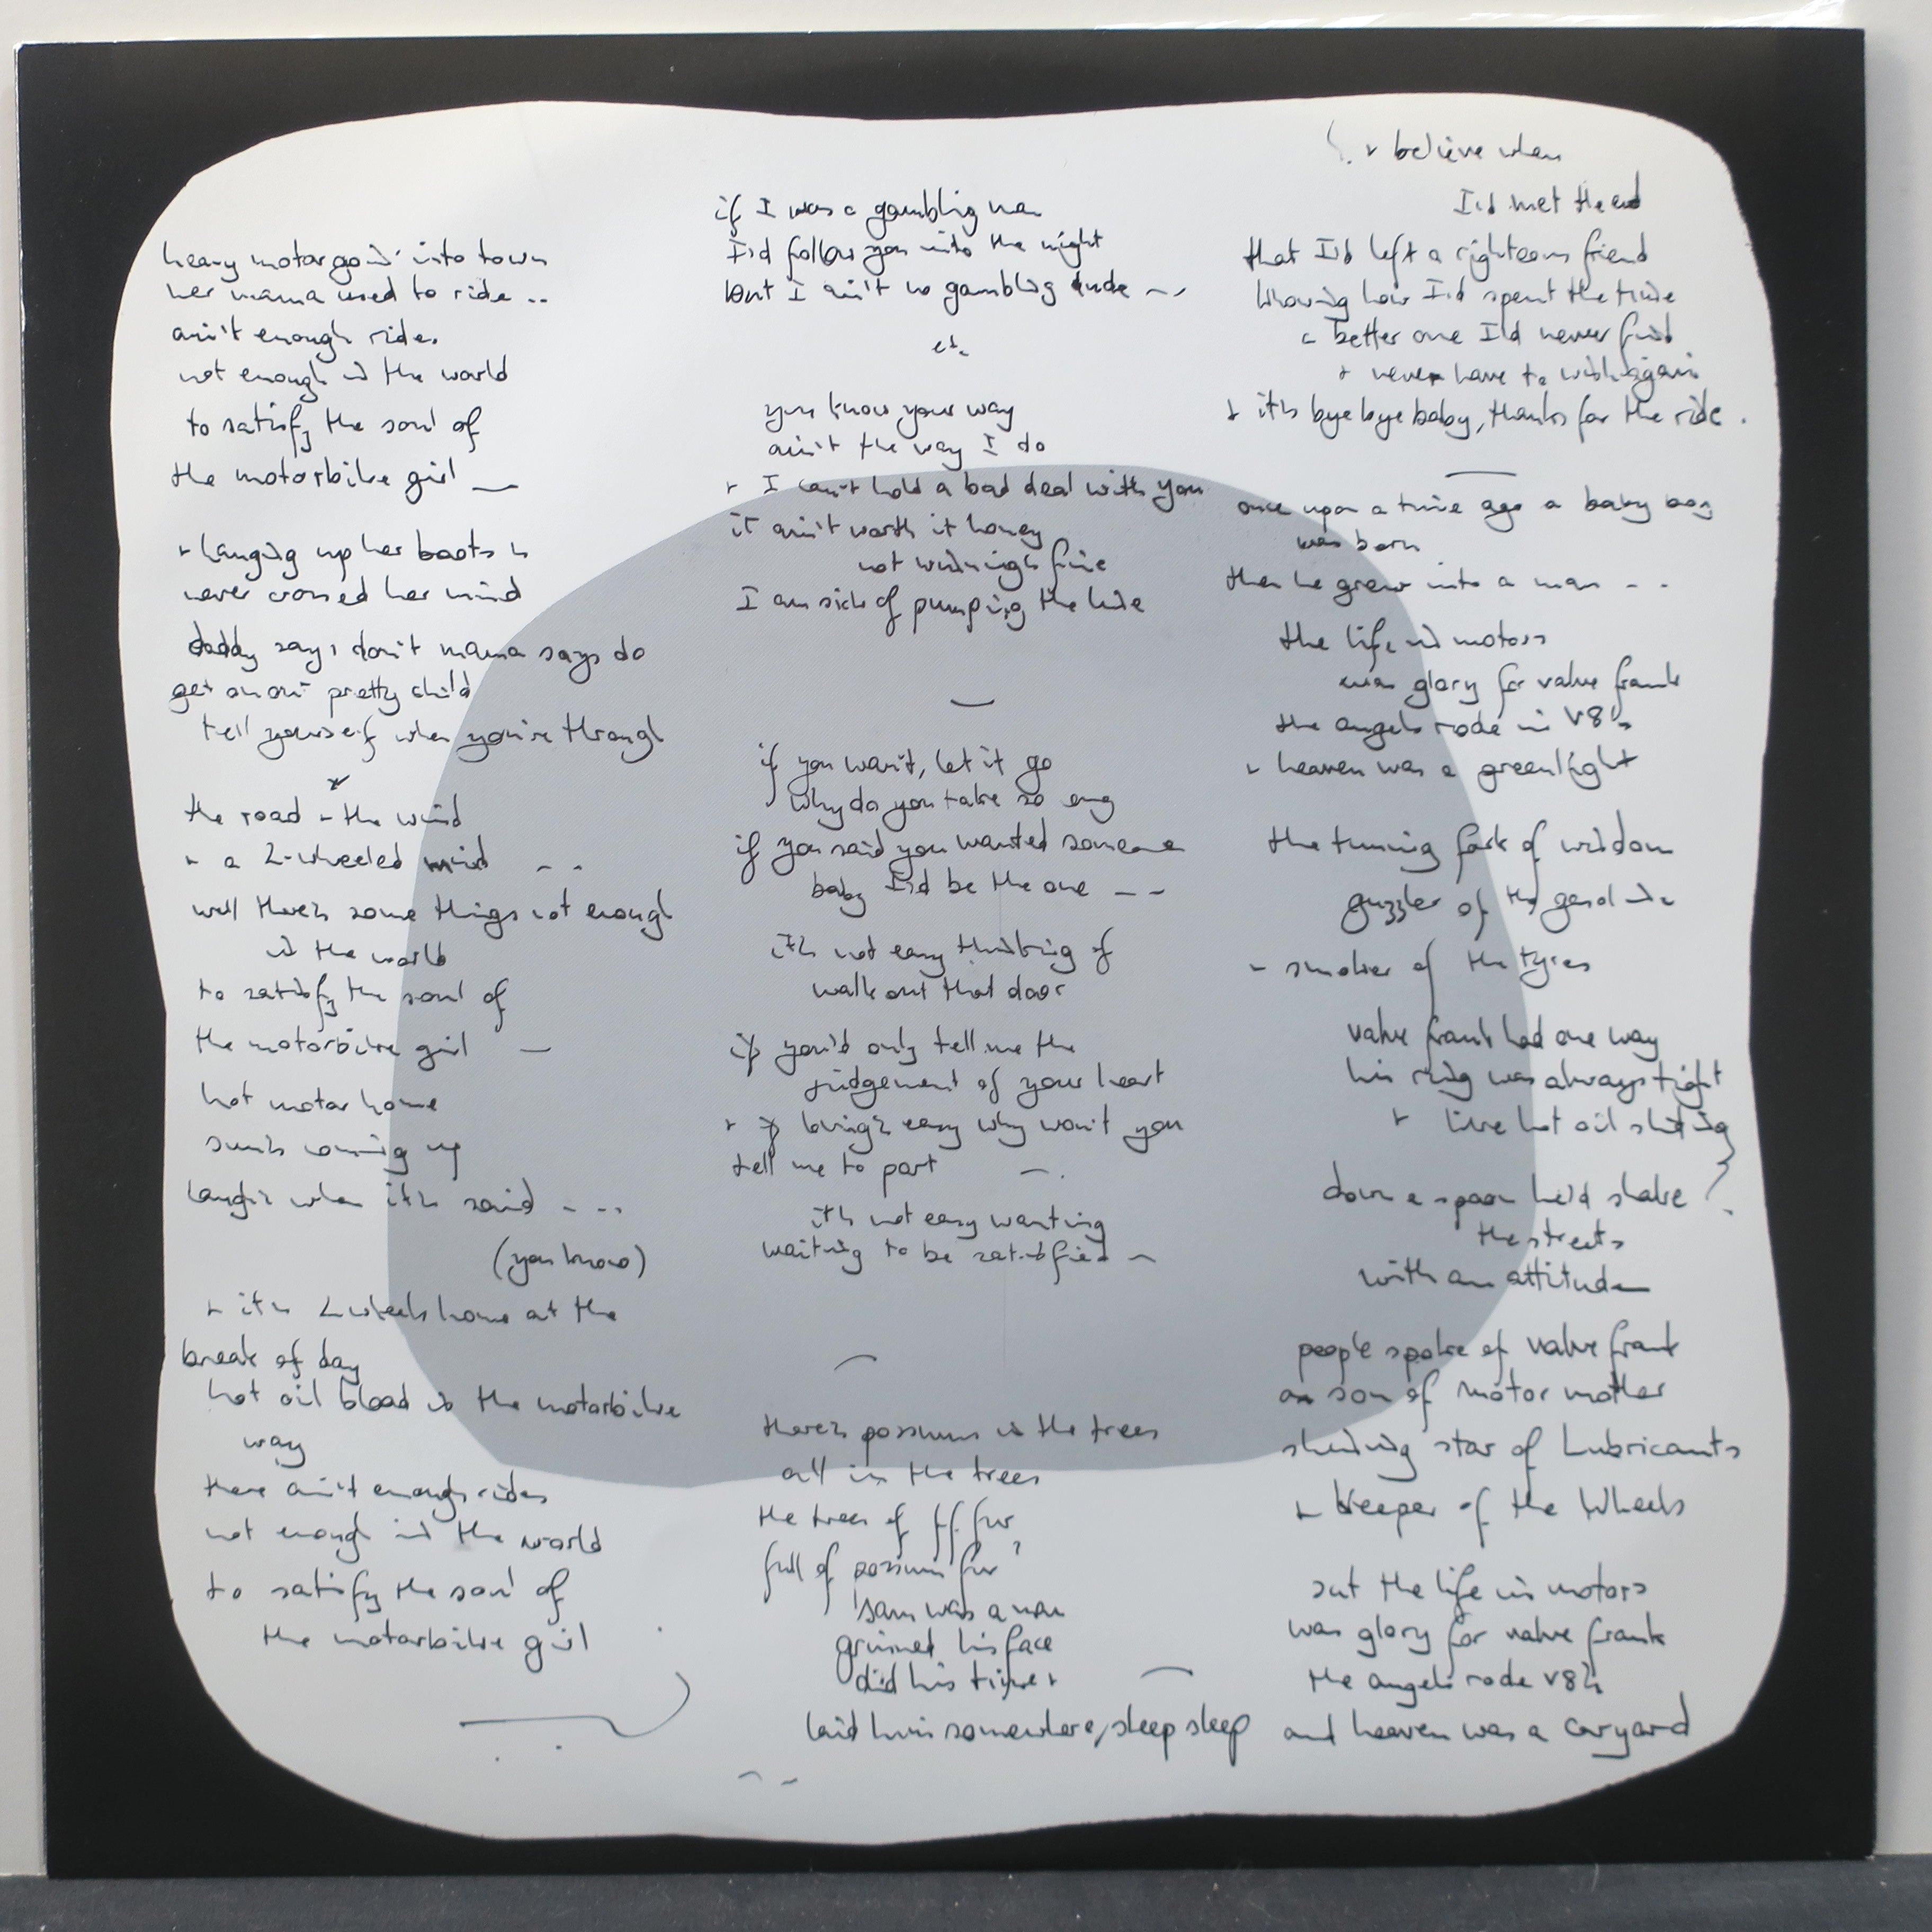 heavy motor goin' into town
her mama used to ride ..
ain't enough rides
not enough in the world
to satisfy the soul of
the motorbike girl —
+ hanging up her boots is
never crossed her mind
daddy says don't mama says do
get on out pretty child
tell yourself when you're through
the road + the wind
+ a 2-wheeled mind - -
well there's some things not enough
in the world
to satisfy the soul of
the motorbike girl —
hot motor home
sun's coming up
laughs when it's said - - -
(you know)
+ it's 2 wheels home at the
break of day
hot oil blood is the motorbike
way
there ain't enough rides
not enough in the world
to satisfy the soul of
the motorbike girl
if I was a gambling man
I'd follow you into the night
but I ain't no gambling dude - -
etc.
you know your way
ain't the way I do
+ I can't hold a bad deal with you
it ain't worth it honey
not winning's fine
I am sick of pumping the line
—
if you want, let it go
why do you take so long
if you said you wanted someone
baby I'd be the one - -
it's not easy thinking of
walk out that door
if you'd only tell me the
judgement of your heart
+ if loving's easy why won't you
tell me to part - .
it's not easy wanting
waiting to be satisfied -
there's possums in the trees
all in the trees
the trees of ff fur,
full of possum fur
sam was a man
grinned his face
did his time +
laid him somewhere, sleep sleep
+ believe when
I'd met the end
that I'd left a righteous friend
knowing how I'd spent the time
a better one I'd never find
+ never have to wish again
+ it's bye bye baby, thanks for the ride.
—
once upon a time ago a baby boy
was born
then he grew into a man - -
the life in motors
was glory for valve frank
the angels rode in V8's
+ heaven was a greenlight
the tuning fork of wisdom
guzzler of the gasoline
+ smoker of the tyres
valve frank had one way
his ring was always tight
+ like hot oil sliding
down a spoon he'd shake
the streets
with an attitude
people spoke of valve frank
as son of motor mother
shining star of Lubricants
+ Keeper of the Wheels
but the life in motors
was glory for valve frank
the angels rode V8's
and heaven was a caryard